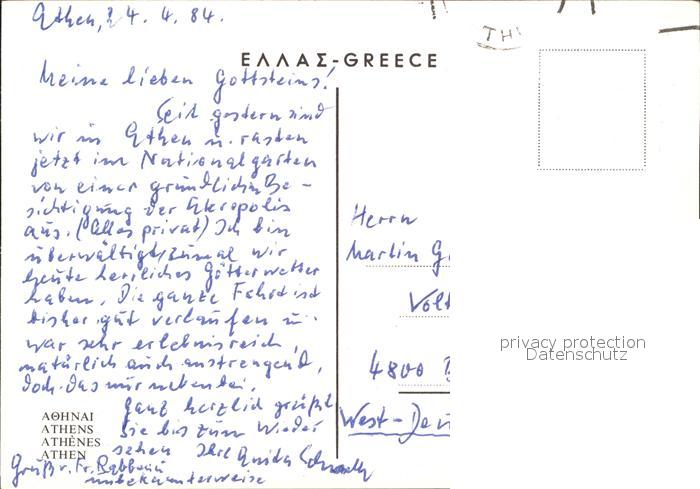 Athen, 24. 4. 84.
ΕΛΛΑΣ-GREECE
Meine lieben Gottsteins!
Seit gestern sind
wir in Athen u. rasten
jetzt im Nationalgarten
von einer gründlichen Be-
sichtigung der Akropolis
aus. (Alles privat) Ich bin
überwältigt, zumal wir
heute herrliches Götterwetter
haben. Die ganze Fahrt ist
bisher gut verlaufen u.
war sehr erlebnisreich,
natürlich auch anstrengend,
doch das nur nebenbei.
Ganz herzlich grüßt
Sie bis zum Wieder
sehen Ihre
Gruß v. Fr.
unbekannterweise
ΑΘΗΝΑΙ
ATHENS
ATHÈNES
ATHEN
Herrn
Martin G
Volt
4800 B
West-Deu
privacy protection
Datenschutz